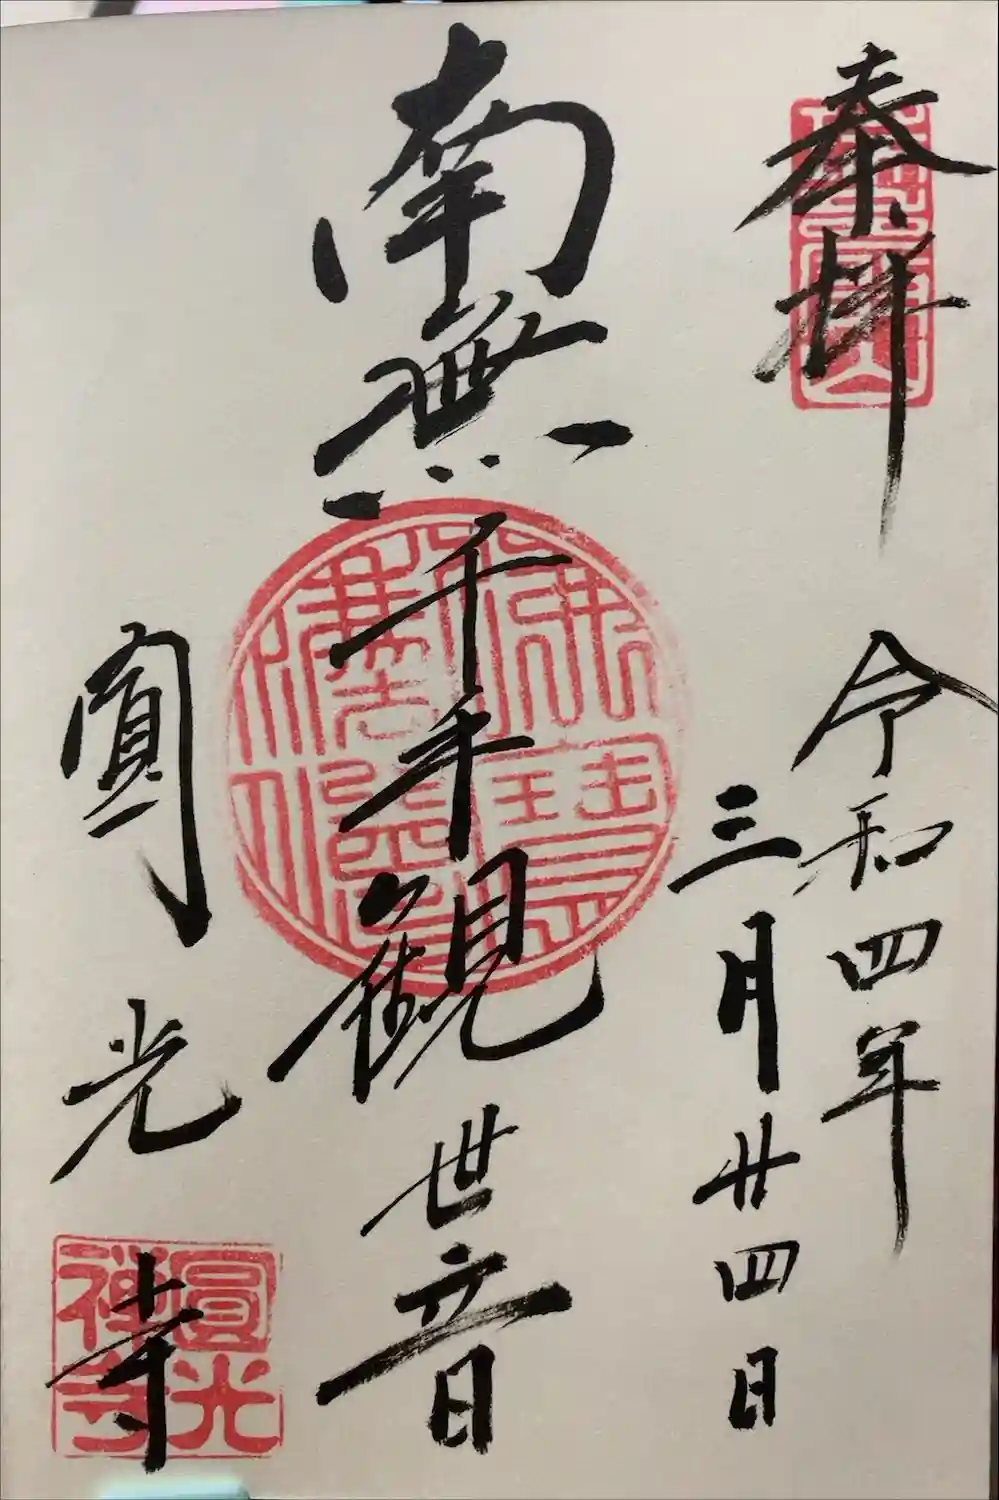 奉拝
令和四年
三月廿四日
南無千手観世音
圓光寺
圓光
禅寺
佛法僧寳